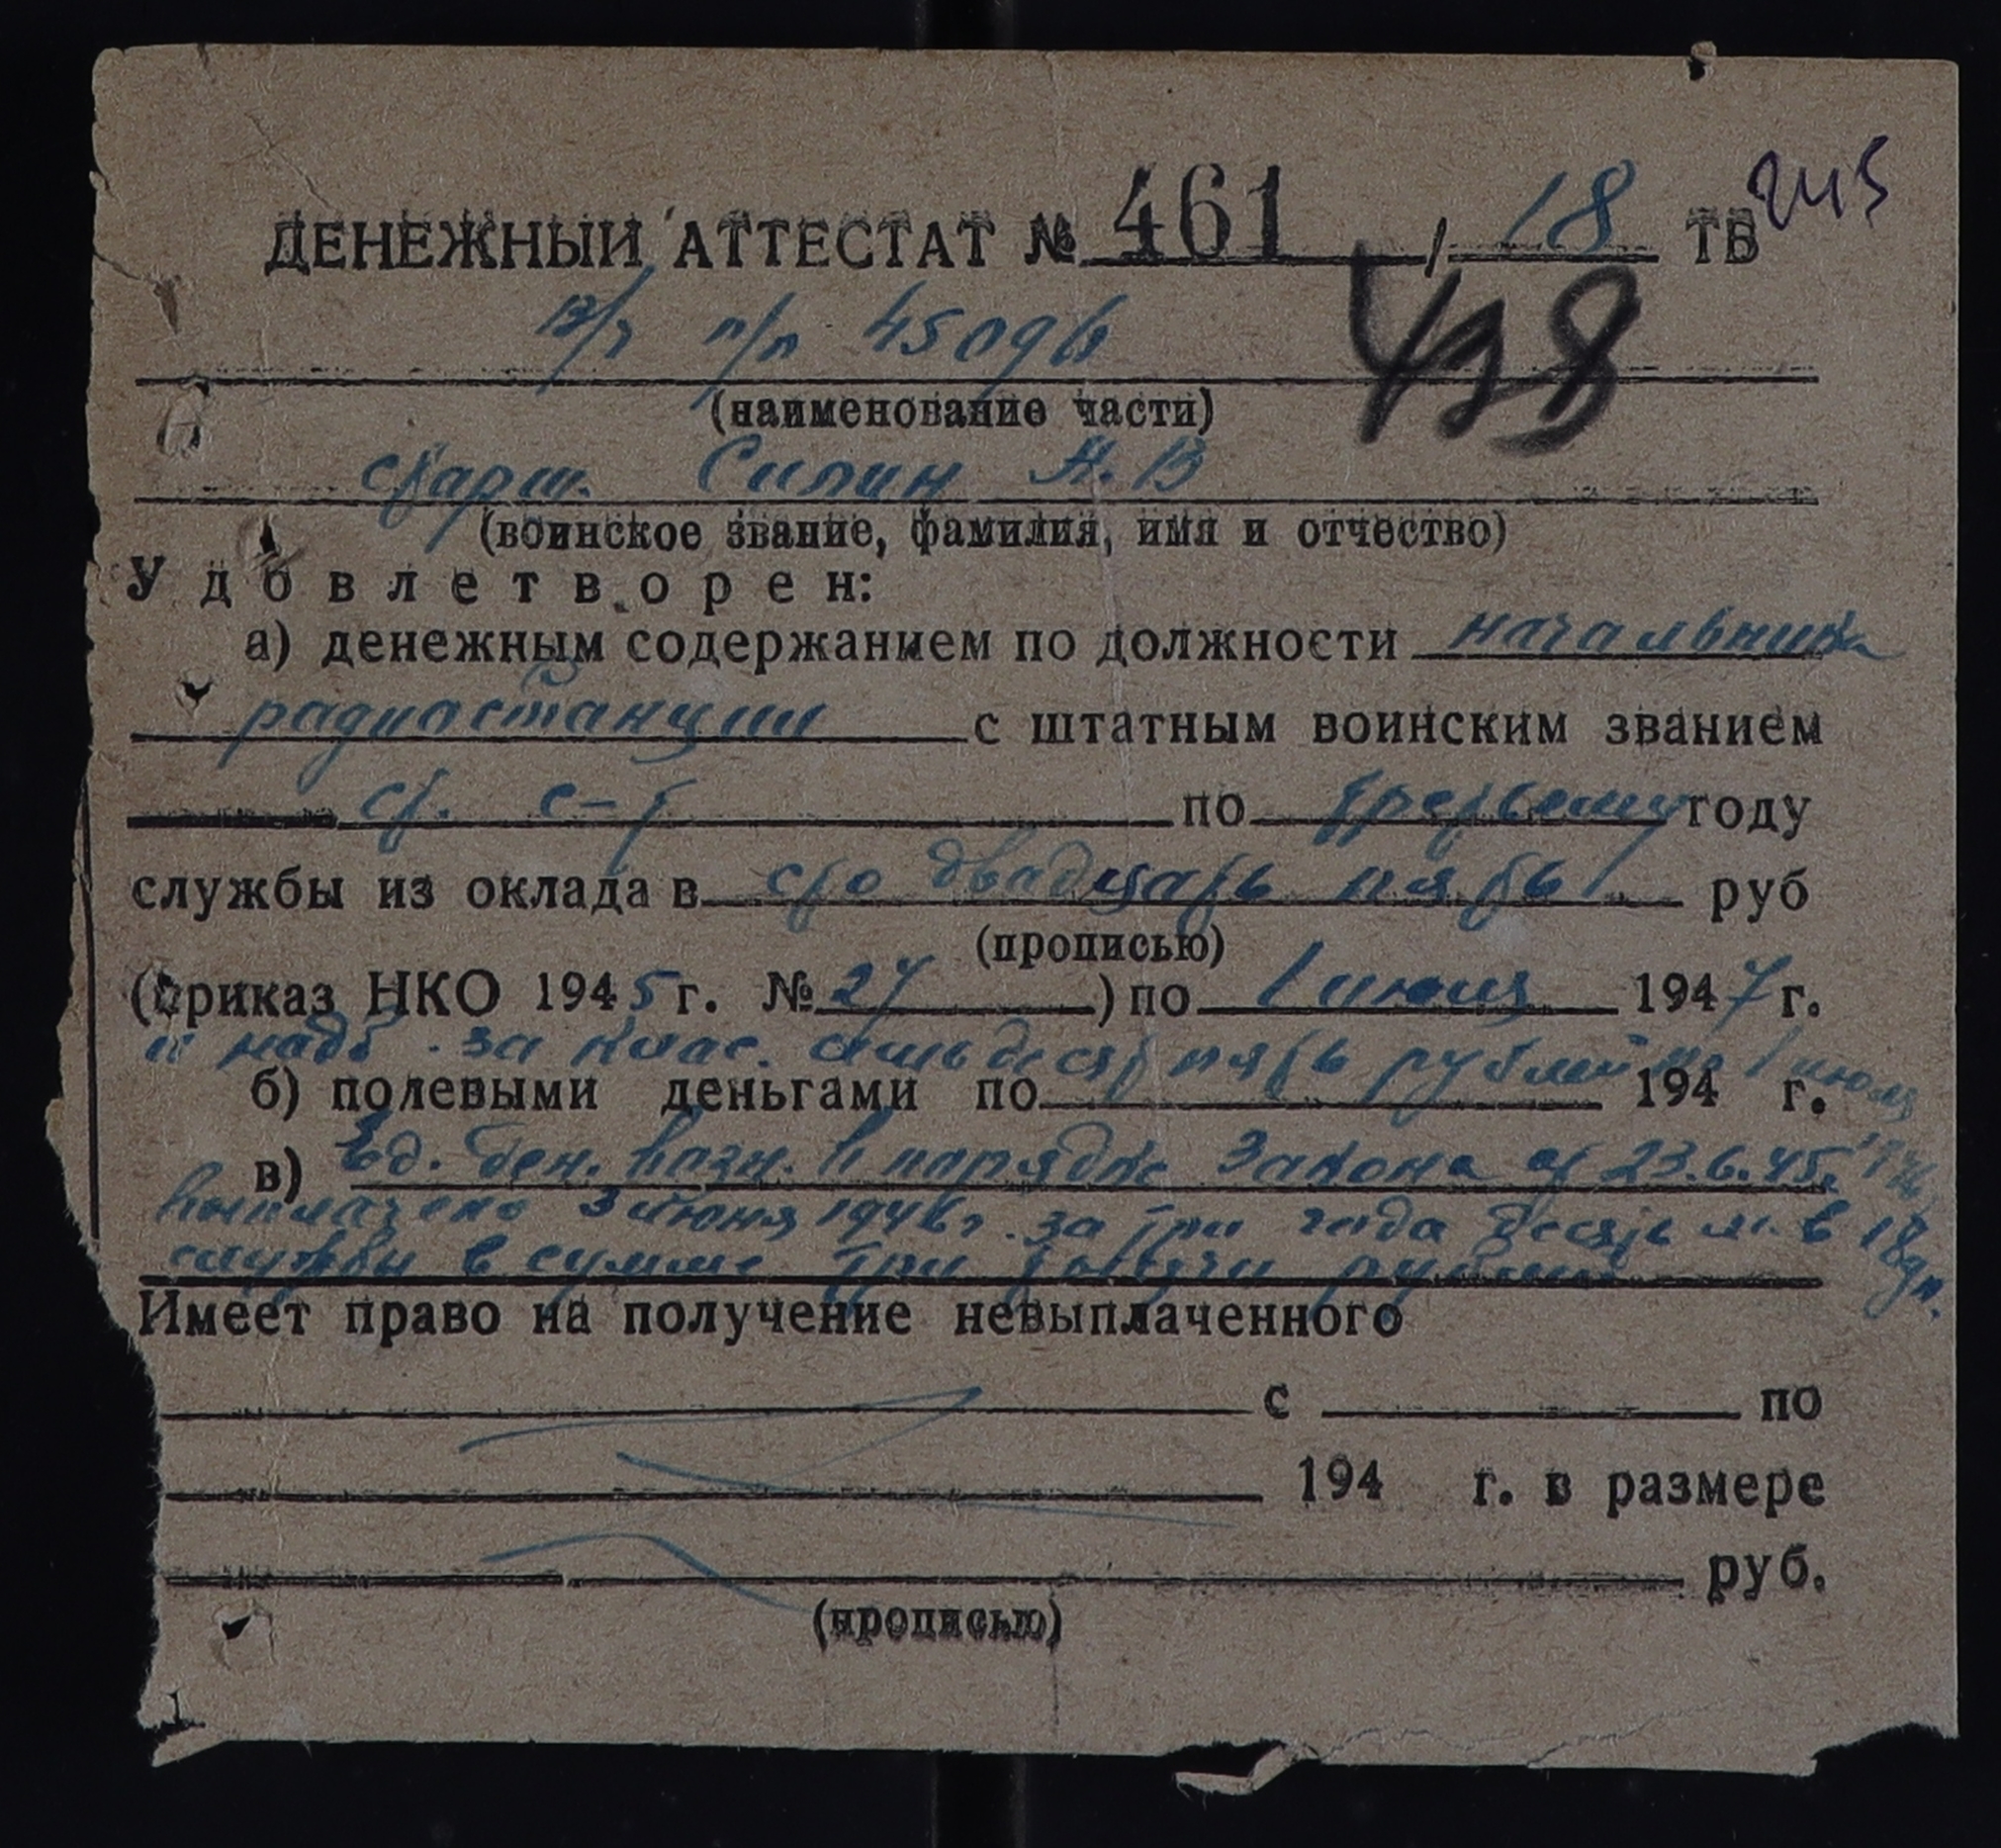 245
ДЕНЕЖНЫЙ АТТЕСТАТ № 461 / 18 ТВ
в/ч п/п 45096
438
(наименование части)
старш. Силин В
(воинское звание, фамилия, имя и отчество)
Удовлетворен:
а) денежным содержанием по должности начальника
радиостанции с штатным воинским званием
ст. с-т по третьему году
службы из оклада в сто двадцать пять руб
(прописью)
(приказ НКО 1945 г. № 24) по 1 июля 1947 г.
и надб. за клас. пять рублей по 1 июля
б) полевыми деньгами по 194 г.
в) Ед. ден. вазн. в порядке Закона от 23.6.45г.
выплачено 3 июня 1946г. за три года десять м. в 18 дн.
службы в сумме три тысячи рублей
Имеет право на получение невыплаченного
с по
194 г. в размере
руб.
(прописью)